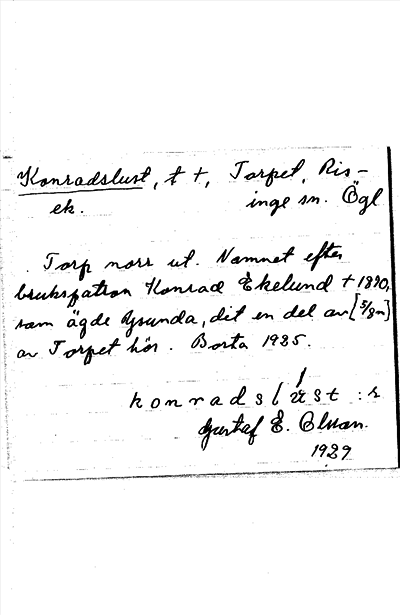 Konradslust, t †, Torpet, Ris-
ek. inge sn. Ögl
Torp norr ut. Namnet efter
brukspatron Konrad Ekelund † 1890,
som ägde Ysunda, dit en del av [5/8 m]
av Torpet hör. Borta 1925.
konradslùst :r
Gustaf E. Olsson.
1929